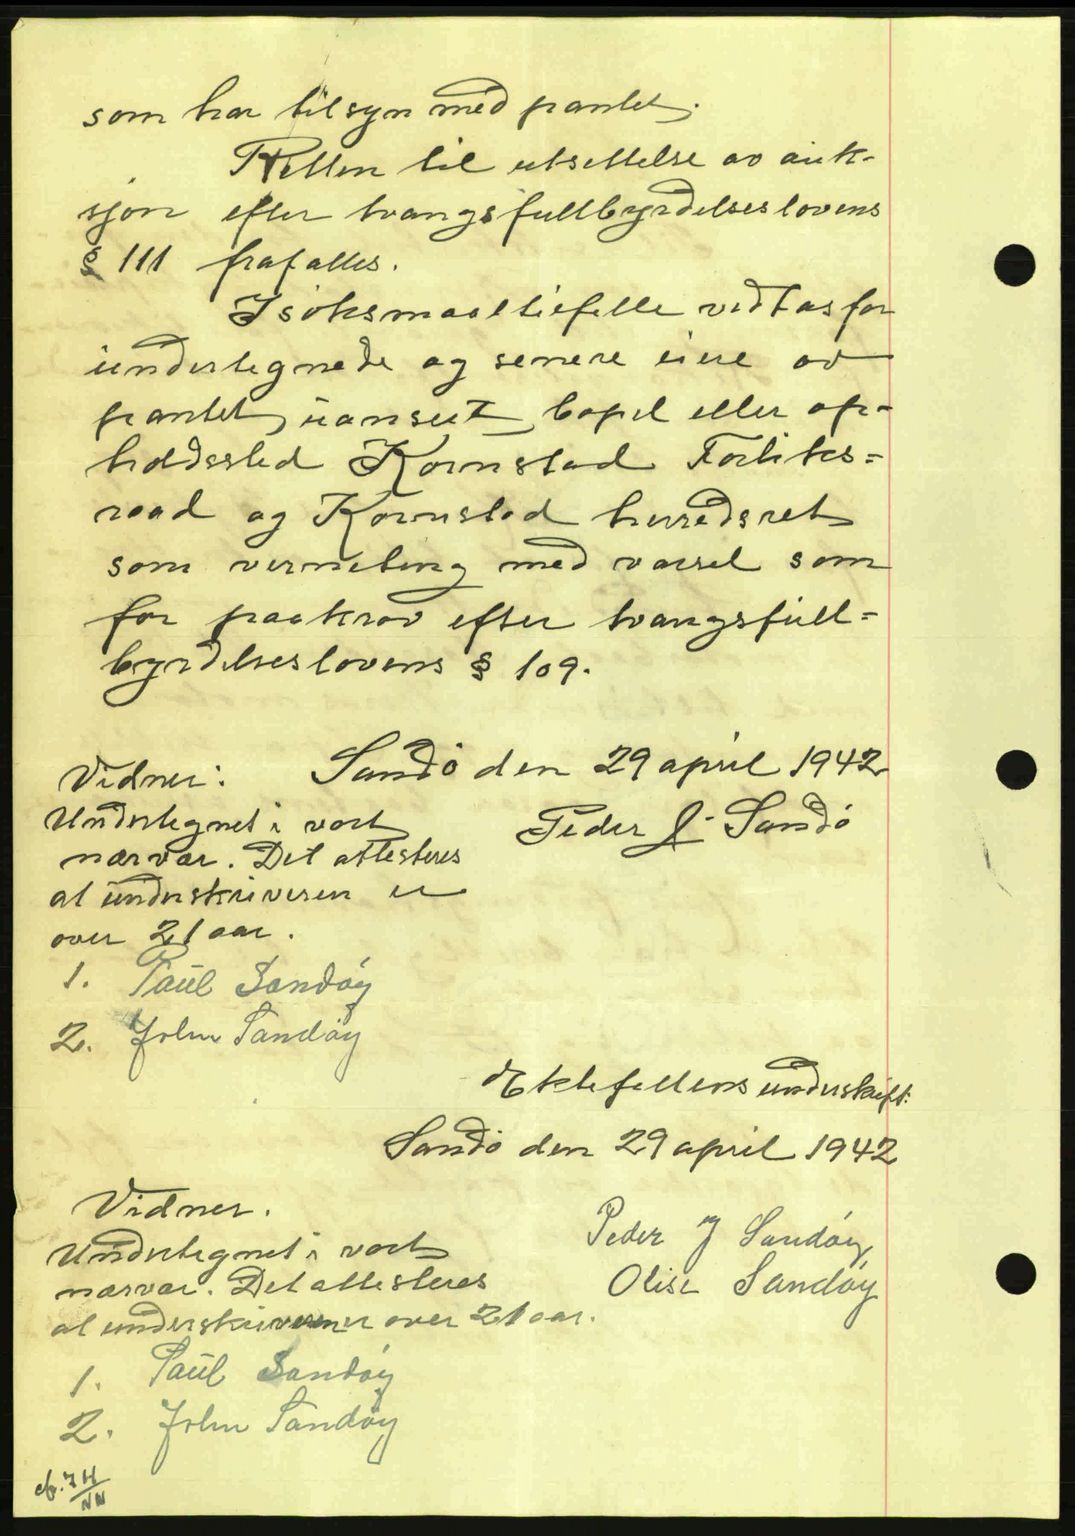 som har tilsyn med pantet.
Retten til utsettelse av auk-
sjon efter tvangsfullbyrdelseslovens
§ 111 frafalles.
I søksmaalstilfelle vedtas for
undertegnede og senere eiere av
pantet, uanset bopel eller op-
holdssted Kornstad Forliks=
raad og Kornstad herredsret
som verneting med varsel som
for paakrav efter tvangsfull=
byrdelseslovens § 109.
Sandø den 29 april 1942
Peder J. Sandø
Vidner:
Undertegnet i vort
nærvær. Det attesteres
at underskriveren er
over 21 aar.
1. Paul Sandøy
2. John Sandøy
Ektefellens underskrift:
Sandø den 29 april 1942
Peder J Sandøy
Olise Sandøy
Vidner.
Undertegnet i vort
nærvær. Det attesteres
at underskriverne er over 21 aar.
1. Paul Sandøy
2. John Sandøy